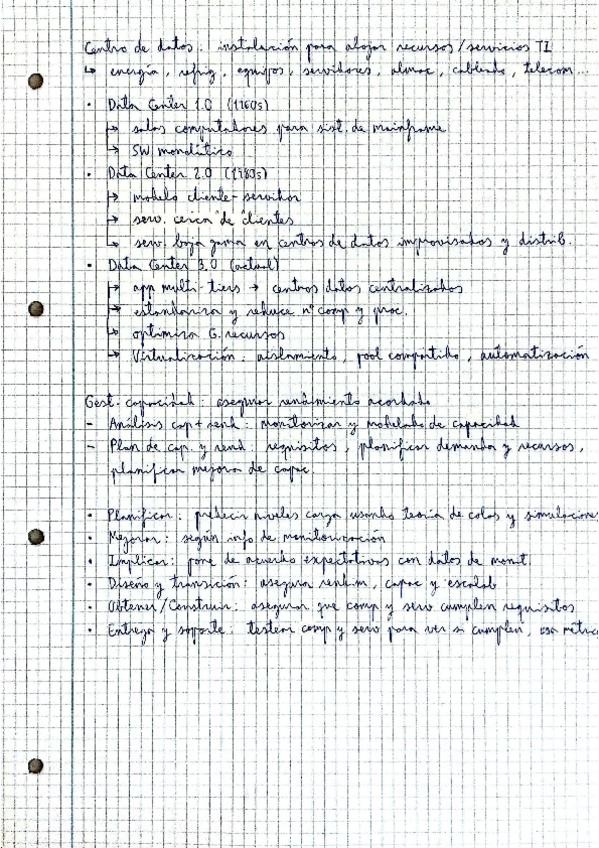 Centro de datos: instalación para alojar recursos/servicios TI
↳ energía, refrig, equipos, servidores, almac, cableado, telecom...
· Data Center 1.0 (1960s)
↳ salas computadores para sist. de mainframe
↳ SW monolítico
· Data Center 2.0 (1980s)
↳ modelo cliente-servidor
↳ serv. cerca de clientes
↳ serv. baja gama en centros de datos improvisados y distrib.
· Data Center 3.0 (actual)
↳ app multi-tiers → centros datos centralizados
↳ estandariza y reduce nº comp y proc.
↳ optimiza G. recursos
↳ Virtualización: aislamiento, pool compartido, automatización
Gest. capacidad: asegurar rendimiento acordado
- Análisis cap + rend: monitorizar y modelado de capacidad
- Plan de cap. y rend: requisitos, planificar demanda y recursos,
planificar mejora de capac.
· Planificar: predecir niveles carga usando teoría de colas y simulaciones
· Mejorar: según info de monitorización
· Implicar: pone de acuerdo expectativas con datos de monit.
· Diseño y transición: asegura rendim, capac y escalab
· Obtener/Construir: asegurar que comp y serv cumplen requisitos
· Entrega y soporte: testear comp y serv para ver si cumplen, usa